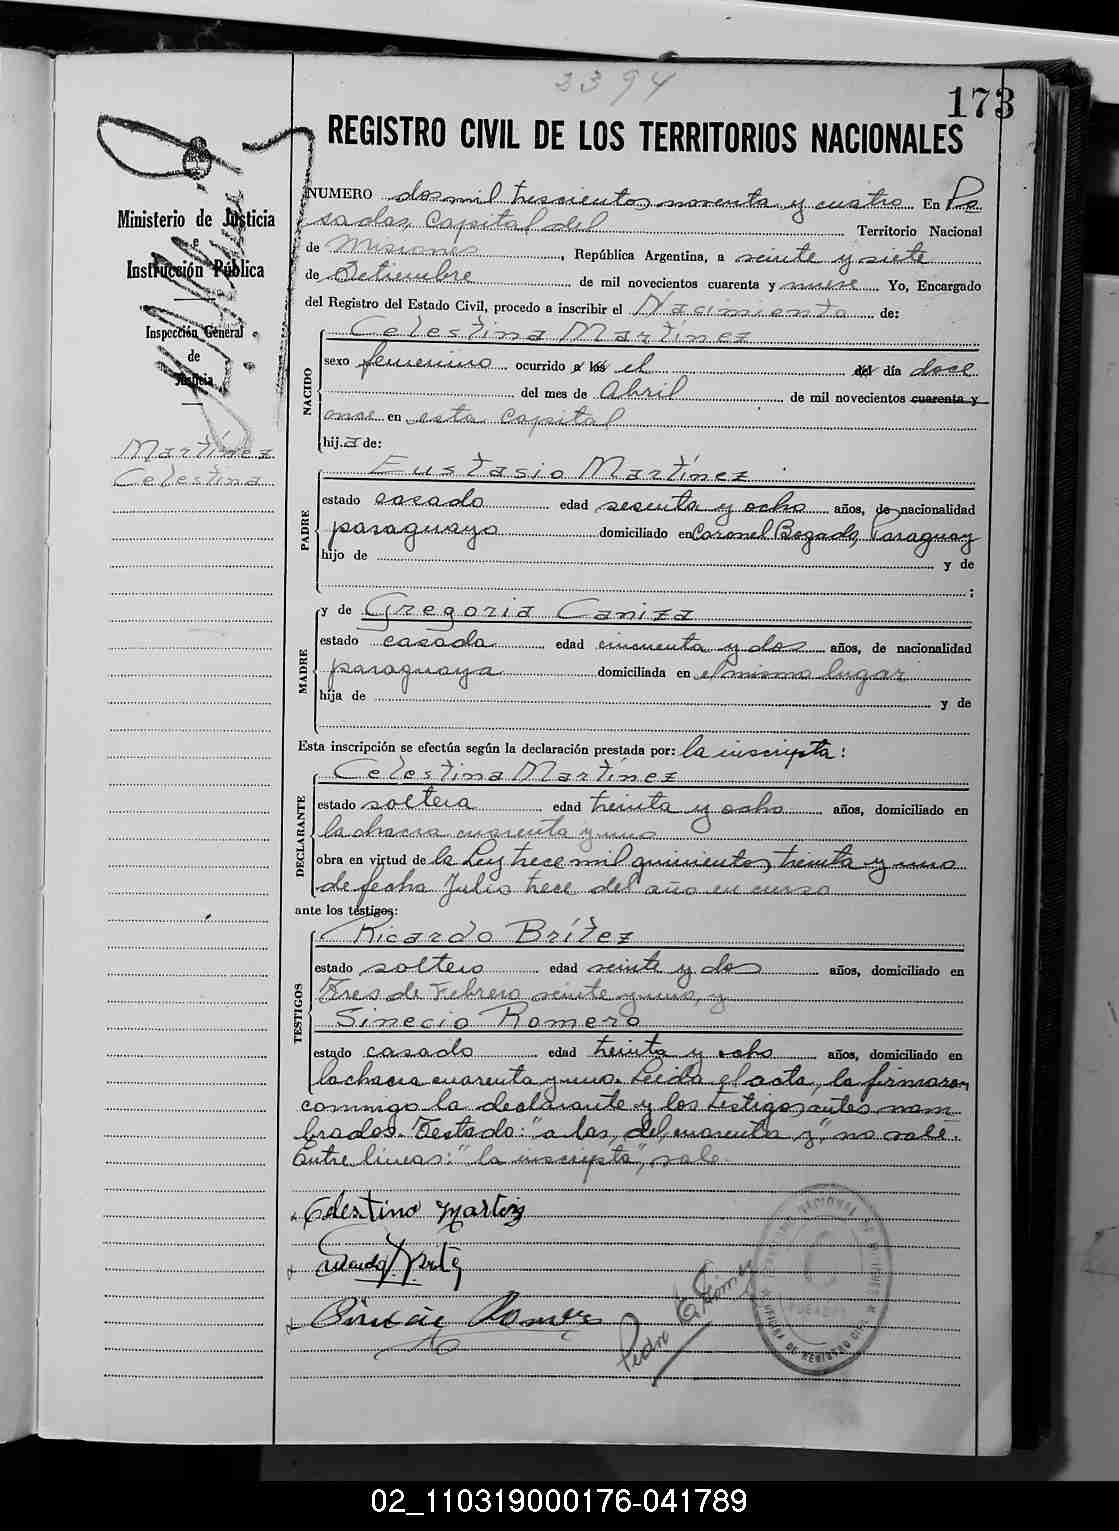 2394
173
REGISTRO CIVIL DE LOS TERRITORIOS NACIONALES
Ministerio de Justicia
e
Instrucción Pública
Inspección General
de
Justicia
Martínez
Celestina
NUMERO dos mil trescientos noventa y cuatro En Po
sadas, Capital del Territorio Nacional
de Misiones, República Argentina, a veinte y siete
de Setiembre de mil novecientos cuarenta y nueve Yo, Encargado
del Registro del Estado Civil, procedo a inscribir el Nacimiento de:
NACIDO
Celestina Martínez
sexo femenino ocurrido a las el del día doce
del mes de Abril de mil novecientos cuarenta y
once en esta Capital
hij.a de:
PADRE
Eustasio Martínez
estado casado edad sesenta y ocho años, de nacionalidad
paraguayo domiciliado en Coronel Bogado, Paraguay
hijo de y de
;
MADRE
y de Gregoria Caniza
estado casada edad cincuenta y dos años, de nacionalidad
paraguaya domiciliada en el mismo lugar
hija de y de
Esta inscripción se efectúa según la declaración prestada por: la inscripta:
DECLARANTE
Celestina Martínez
estado soltera edad treinta y ocho años, domiciliado en
la chacra cuarenta y uno
obra en virtud de la Ley trece mil quinientos treinta y uno
de fecha Julio trece del año en curso
ante los testigos:
TESTIGOS
Ricardo Brítez
estado soltero edad veinte y dos años, domiciliado en
Tres de Febrero veinte y uno, y
Sinecio Romero
estado casado edad treinta y ocho años, domiciliado en
la chacra cuarenta y uno. Leida el acta, la firmaron
conmigo la declarante y los testigos antes nom
brados. Testado: "a las, del, cuarenta y", no vale.
Entre lineas: "la inscripta", vale.
Celestina Martinez
Pedro Gómez
OFICINA DE REGISTRO CIVIL
POSADAS
02_110319000176-041789